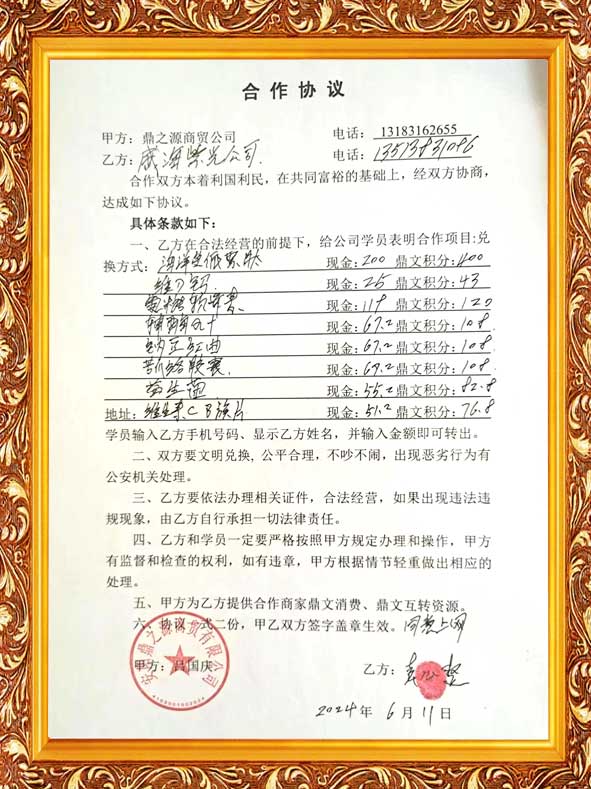 合作协议
甲方：鼎之源商贸公司 电话：13183162655
乙方：威海紫光公司. 电话：13573831086
合作双方本着利国利民，在共同富裕的基础上，经双方协商，
达成如下协议。
具体条款如下：
一、乙方在合法经营的前提下，给公司学员表明合作项目:兑
换方式：海洋生低聚肽 现金：200 鼎文积分：400
维D钙 现金：25 鼎文积分：43
现金：119 鼎文积分：120
辅酶九十 现金：67.2 鼎文积分：108
纳豆红曲 现金：67.2 鼎文积分：108
胶囊 现金：67.2 鼎文积分：108
现金：55.2 鼎文积分：82.8
地址：维生素C B族片 现金：51.2 鼎文积分：76.8
学员输入乙方手机号码、显示乙方姓名，并输入金额即可转出。
二、双方要文明兑换, 公平合理，不吵不闹，出现恶劣行为有
公安机关处理。
三、乙方要依法办理相关证件，合法经营，如果出现违法违
规现象，由乙方自行承担一切法律责任。
四、乙方和学员一定要严格按照甲方规定办理和操作，甲方
有监督和检查的权利，如有违章，甲方根据情节轻重做出相应的
处理。
五、甲方为乙方提供合作商家鼎文消费、鼎文互转资源。
六、协议一式二份，甲乙双方签字盖章生效。同意上网
甲方：吕国庆 乙方：
2024年 6月11日